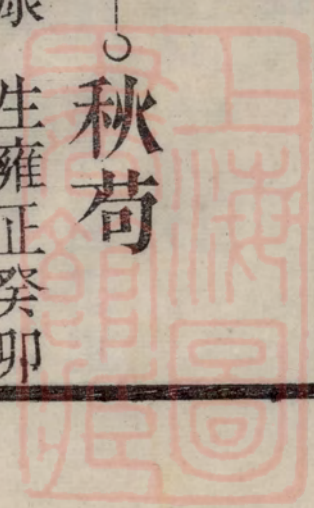 上海圖
書館藏
秋苟
生雍正癸卯